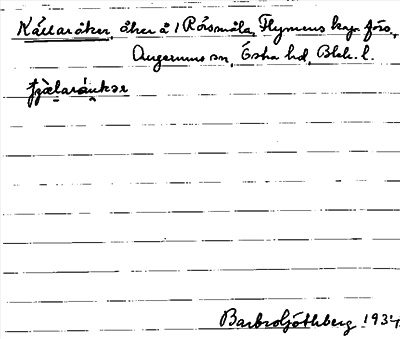 Källaråker, åker å 1 Rörsmåla, Flymens kap. förs.,
Augerums sn, Östra hd, Blek. l.
Barbro Göthberg 1934